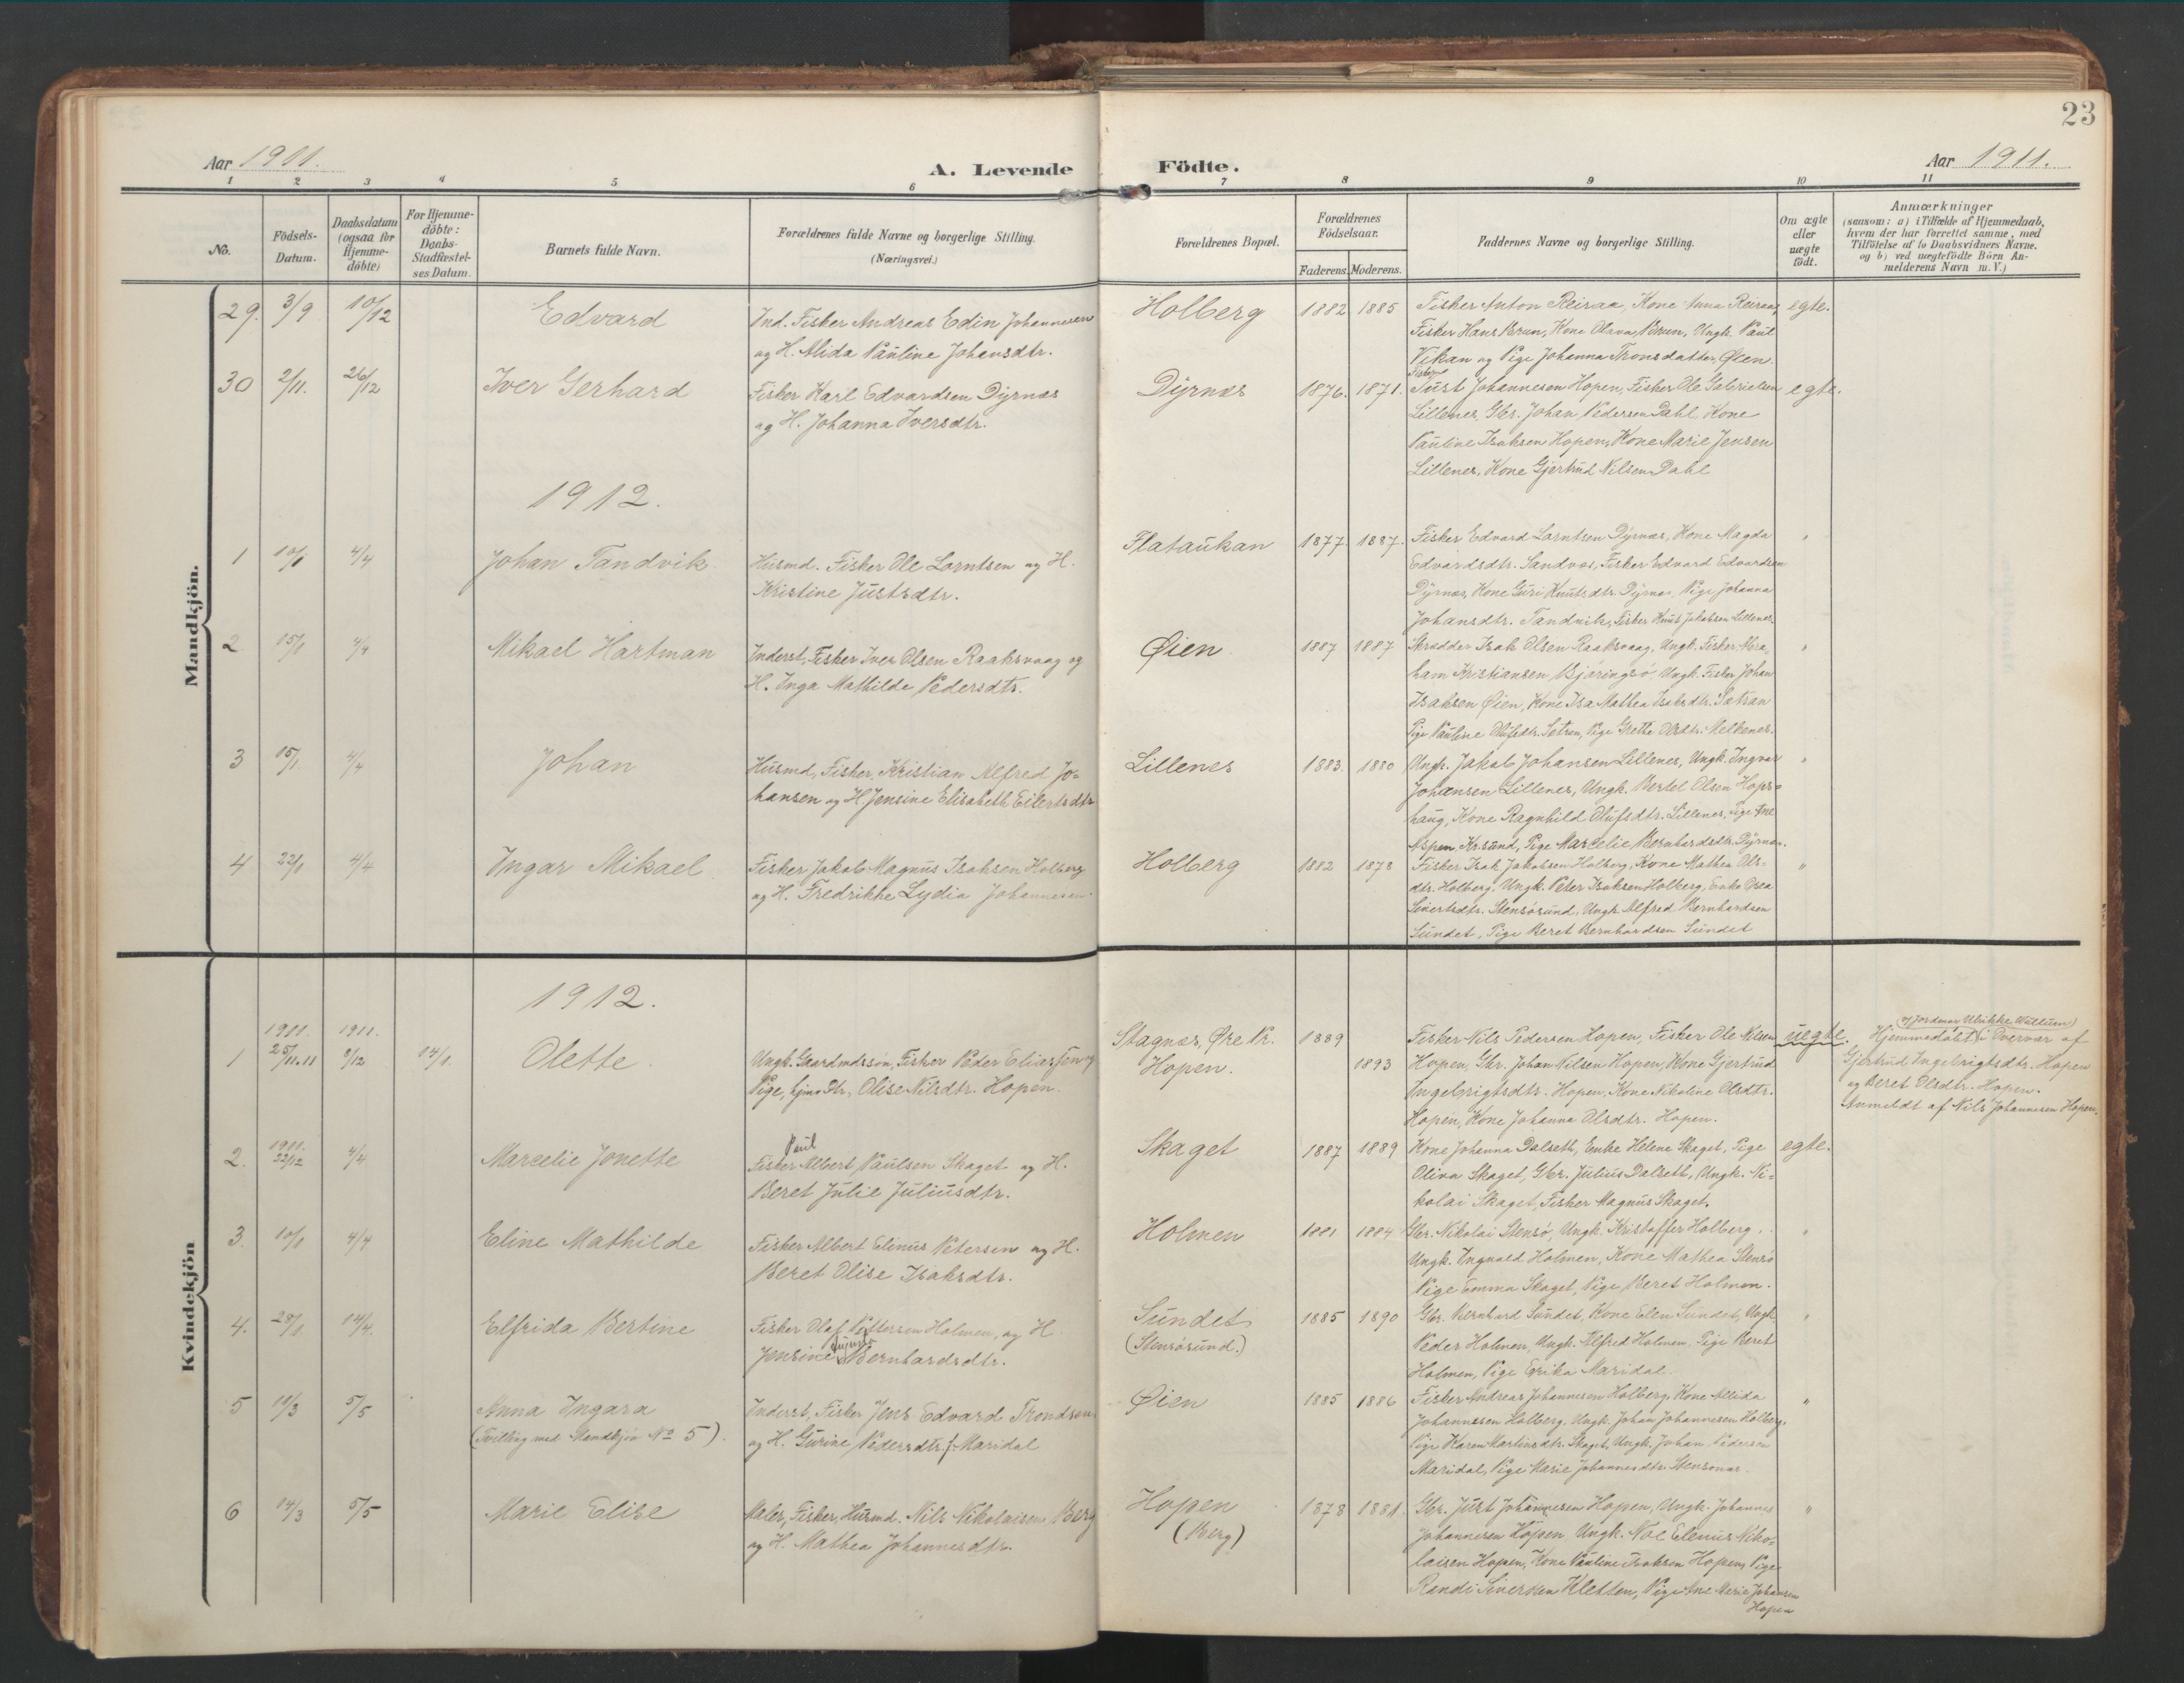 23
Aar 1911.
A. Levende Födte.
Aar 1911.
1 2 3 4 5 6 7 8 9 10 11
No.
Födsels-Datum.
Daabsdatum (ogsaa for Hjemme-döbte)
For Hjemme-döbte: Daabs-Stadfæstel-ses Datum.
Barnets fulde Navn.
Forældrenes fulde Navne og borgerlige Stilling. (Næringsvei.)
Forældrenes Bopæl.
Forældrenes Födselsaar.
Faderens. Moderens.
Faddernes Navne og borgerlige Stilling.
Om ægte eller uægte födt.
Anmærkninger
(saasom: a) i Tilfælde af Hjemmedaab,
hvem der har forrettet samme, med
Tilföielse af to Daabsvidners Navne.
og b) ved uægtefödte Börn An-
melderens Navn m. V.)
Mandkjön.
29. 3/9 10/12 Edvard
Ind. Fisker Andreas Edin Johannesen
og H. Alida Pauline Johansdtr.
Holberg 1882 1885
Fisker Anton Reiraa, Kone Anna Reiraa,
Fisker Hans Brun, Kone Olava Brun, Ungk. Paul
Vikan og Pige Johanna Tronsdatter Øien.
egte.
30 2/11. 26/12 Iver Gerhard
Fisker Karl Edvardsen Dyrnæs
og H. Johanna Iversdtr.
Dyrnæs 1876. 1871.
Fisker
Just Johannesen Hopen, Fisker Ole Gabrielsen
Lillenes, Gbr. Johan Pedersen Dahl, Kone
Pauline Isaksen Hopen, Kone Marie Jensen
Lillenes, Kone Gjertrud Nilsen Dahl
egte.
1912.
1 10/1 4/4 Johan Tandvik.
Husmd. Fisker Ole Lorntsen og H.
Kristine Justsdtr.
Flataukan 1877 1887.
Fisker Edvard Lorntsen Dyrnæs, Kone Magda
Edvardsdtr. Sandvæs, Fisker Edvard Edvardsen
Dyrnæs, Kone Guri Knutsdtr. Dyrnæs, Pige Johanna
Johansdtr. Tandvik, Fisker Knut Jakobsen Lillenes.
"
2 15/1 4/4 Mikael Hartman
Inderst, Fisker Iver Olsen Raaksvaag og
H. Inga Mathilde Pedersdtr.
Øien 1887 1887
Skrædder Isak Olsen Raaksvaag, Ungk. Fisker Abra-
ham Kristiansen, Bjøringsø, Ungk. Fisker Johan
Isaksen Øien, Kone Isa Mathea Isaksdtr. Sætran
Pige Pauline Olufsdtr. Setran, Pige Grethe Olsdtr. Melkenes.
"
3 15/1. 4/4 Johan
Husmd, Fisker, Kristian Alfred Jo-
hansen og H. Jensine Elisabeth Eilertsdtr
Lillenes 1883. 1880
Ungk. Jakob Johansen Lillenes, Ungk. Ingvar
Johansen Lillenes, Ungk. Bertel Olsen Hops-
haug, Kone Ragnhild Olufsdtr. Lillenes, Pige Ane
Aspen, Kr.sund, Pige Marcelie Bernhardsdtr. Dyrnæs.
"
4 22/1 4/4 Ingar Mikael
Fisker Jakob Magnus Isaksen Holberg
og H. Fredrikke Lydia Johannesen.
Holberg 1882 1878
Fisker Isak Jakobsen Holberg, Kone Mathea Ols-
dtr. Holberg, Ungk. Peter Isaksen Holberg, Enke Osea
Sivertsdtr. Stensøsund, Ungk Alfred Bernhardsen
Sundet, Pige Beret Bernhardsen Sundet
"
Kvindekjön
1912.
1 1911. 25/11.11 1911. 8/12 14/1. Olette.
Ungk. Gaardmdssøn, Fisker Peder Eliassen og
Pige, hjmv. Dtr, Olise Nilsdtr. Hopen.
Stagnæs, Øre Pr. 1889
Hopen. 1893
Fisker Nils Pedersen Hopen, Fisker Ole Nilsen
Hopen, Gbr. Johan Nilsen Hopen, Kone Gjertrud
Ingebrigtsdtr. Hopen, Kone Nikoline Olsdtr.
Hopen, Kone Johanna Olsdtr. Hopen.
uegte.
af Jordmor Ulrikke Wullum
Hjemmedøbt i Overvær af
Gjertrud Ingebrigtsdtr. Hopen
og Beret Olsdtr. Hopen.
Anmeldt af Nils Johannesen Hopen.
2. 1911. 22/12 4/4 Marcelie Jonette
Paul
Fisker Albert Paulsen Skaget og H.
Beret Julie Juliusdtr.
Skaget 1887 1889
Kone Johanna Dalseth, Enke Helene Skaget, Pige
Oliva Skaget, Gbr. Julius Dalseth, Ungk. Ni-
kolai Skaget, Fisker Magnus Skaget.
egte.
3. 10/1 4/4 Eline Mathilde
Fisker Albert Elinus Petersen og H.
Beret Olise Isaksdtr.
Holmen 1881 1884
Gbr. Nikolai Stensø, Ungk. Kristoffer Holberg.
Ungk. Ingvald Holmen, Kone Mathea Stensø
Pige Emma Skaget, Pige Beret Holmen.
"
4. 28/1 14/4. Elfrida Bertine
Fisker Olaf Pettersen Holmen, og H.
Jensine Bernhardsdtr.
Sundet (Stensøsund.) 1885 1890
Gbr. Bernhard Sundet, Kone Elen Sundet, Ungk
Peder Holmen, Ungk. Alfred Holmen, Pige Beret
Holmen, Pige Erika Maridal.
"
5 10/3 5/5 Anna Ingara
(Tvilling med Mandkjøn No 5).
Inderst, Fisker Jens Edvard Trondsen
og H. Gurine Pedersdtr. f. Maridal
Øien 1885 1886
Fisker Andreas Johannesen Holberg, Kone Allida
Johannesen Holberg, Ungk. Johan Johannesen Holberg,
Pige Karen Martinsdtr. Skaget, Ungk. Johan Pedersen
Maridal, Pige Marie Johannesdtr. Stensønes.
"
6 14/3 5/5 Marie Elise
Maler, Fisker, Husmd. Nils Nikolaisen Berg
og H. Mathea Johannesdtr.
Hopen (Berg) 1878 1881.
Gbr. Just Johannesen Hopen, Ungk. Johannes
Johannesen Hopen, Ungk. Noe Elenus Niko-
laisen Hopen, Kone Pauline Isaksen Hopen, Pige
Randi Siversen Kletten, Pige Ane Marie Johansen
Hopen
"